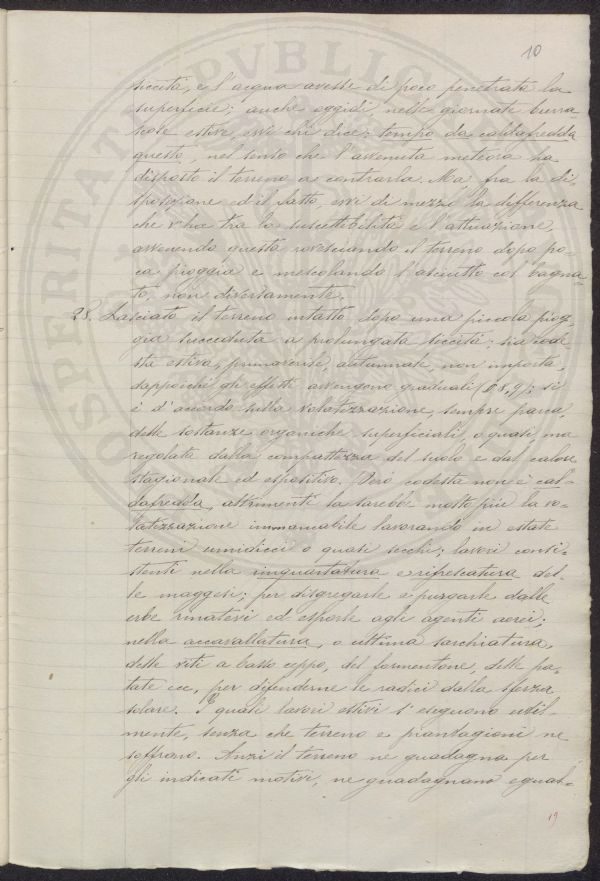 10
siccità, e l'acqua avesse di poco penetrata la
superficie; anche oggidì, nelle giornate burra-
scose estive, evvi chi dice: tempo da caldafredda
questo, nel senso che l'avvenuta meteora ha
disposto il terreno a contrarla. Ma fra la di-
sposizione ed il fatto, evvi di mezzo la differenza
che v'ha tra la suscettibilità e l'attuazione,
avvenendo questa rovesciando il terreno dopo po-
ca pioggia e mescolando l'asciutto col bagna-
to, non diversamente.
28. Lasciato il terreno intatto dopo una piccola piog-
gia succeduta a prolungata siccità, sia
essa estiva, primaverile, autunnale, non importa,
dappoichè gli effetti avvengono graduali (6, 8, 9); si
è d'accordo sulla volatizzazione, sempre parca,
delle sostanze organiche superficiali, o quasi, ma
regolata dalla compattezza del suolo e dal calore
stagionale ed espositivo. Però codesta non è cal-
dafredda, altrimenti la sarebbe molto più la vo-
latizzazione immancabile lavorando in estate
terreni umidicci o quasi secchi; lavori consi-
stenti nella rinquartatura e rifrescatura del-
le maggesi; per disgregarle e purgarle dalle
erbe rinatesi ed esporle agli agenti aerei;
nella accavallatura, o ultima sarchiatura,
delle viti a basso ceppo, del formentone, delle pa-
tate ecc, per difenderne le radici dalla sferza
solare. I quali lavori estivi s'eseguono util-
mente, senza che terreno e piantagioni ne
soffrano. Anzi il terreno ne guadagna per
gli indicati motivi, ne guadagnano egual-
19
PROSPERITATI PVBLICAE